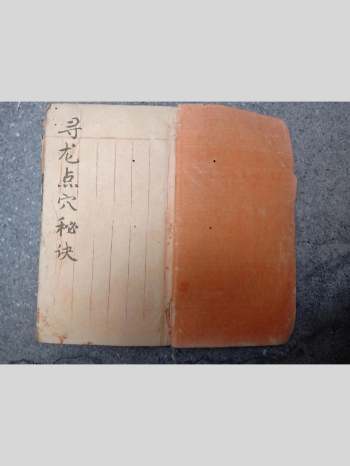 寻龙点穴秘诀